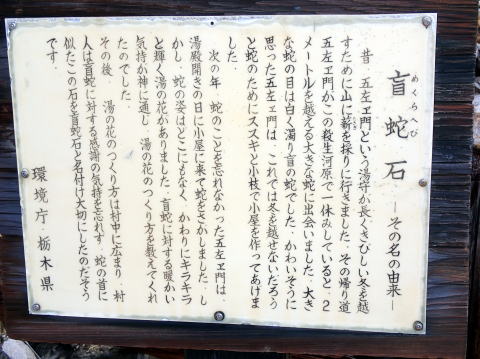 盲蛇石 ―その名の由来―
めくらへび
昔、五左ヱ門という湯守が長くきびしい冬を越
すために山に薪を採りに行きました。その帰り道
五左ヱ門がこの殺生河原で一休みしていると、2
メートルを越える大きな蛇に出会いました。大き
な蛇の目は白く濁り盲の蛇でした。かわいそうに
思った五左ヱ門は、これでは冬を越せないだろう
と蛇のためにススキと小枝で小屋を作ってあげま
した。
次の年、蛇のことを忘れなかった五左ヱ門は、
湯殿開きの日に小屋に来て蛇をさがしました。し
かし、蛇の姿はどこにもなく、かわりにキラキラ
と輝く湯の花がありました。盲蛇に対する暖かい
気持が神に通じ、湯の花のつくり方を教えてくれ
たのでした。
その後、湯の花のつくり方は村中に広まり、村
人は盲蛇に対する感謝の気持を忘れず、蛇の首に
似たこの石を盲蛇石と名付け大切にしたのだそう
です。
環境庁・栃木県